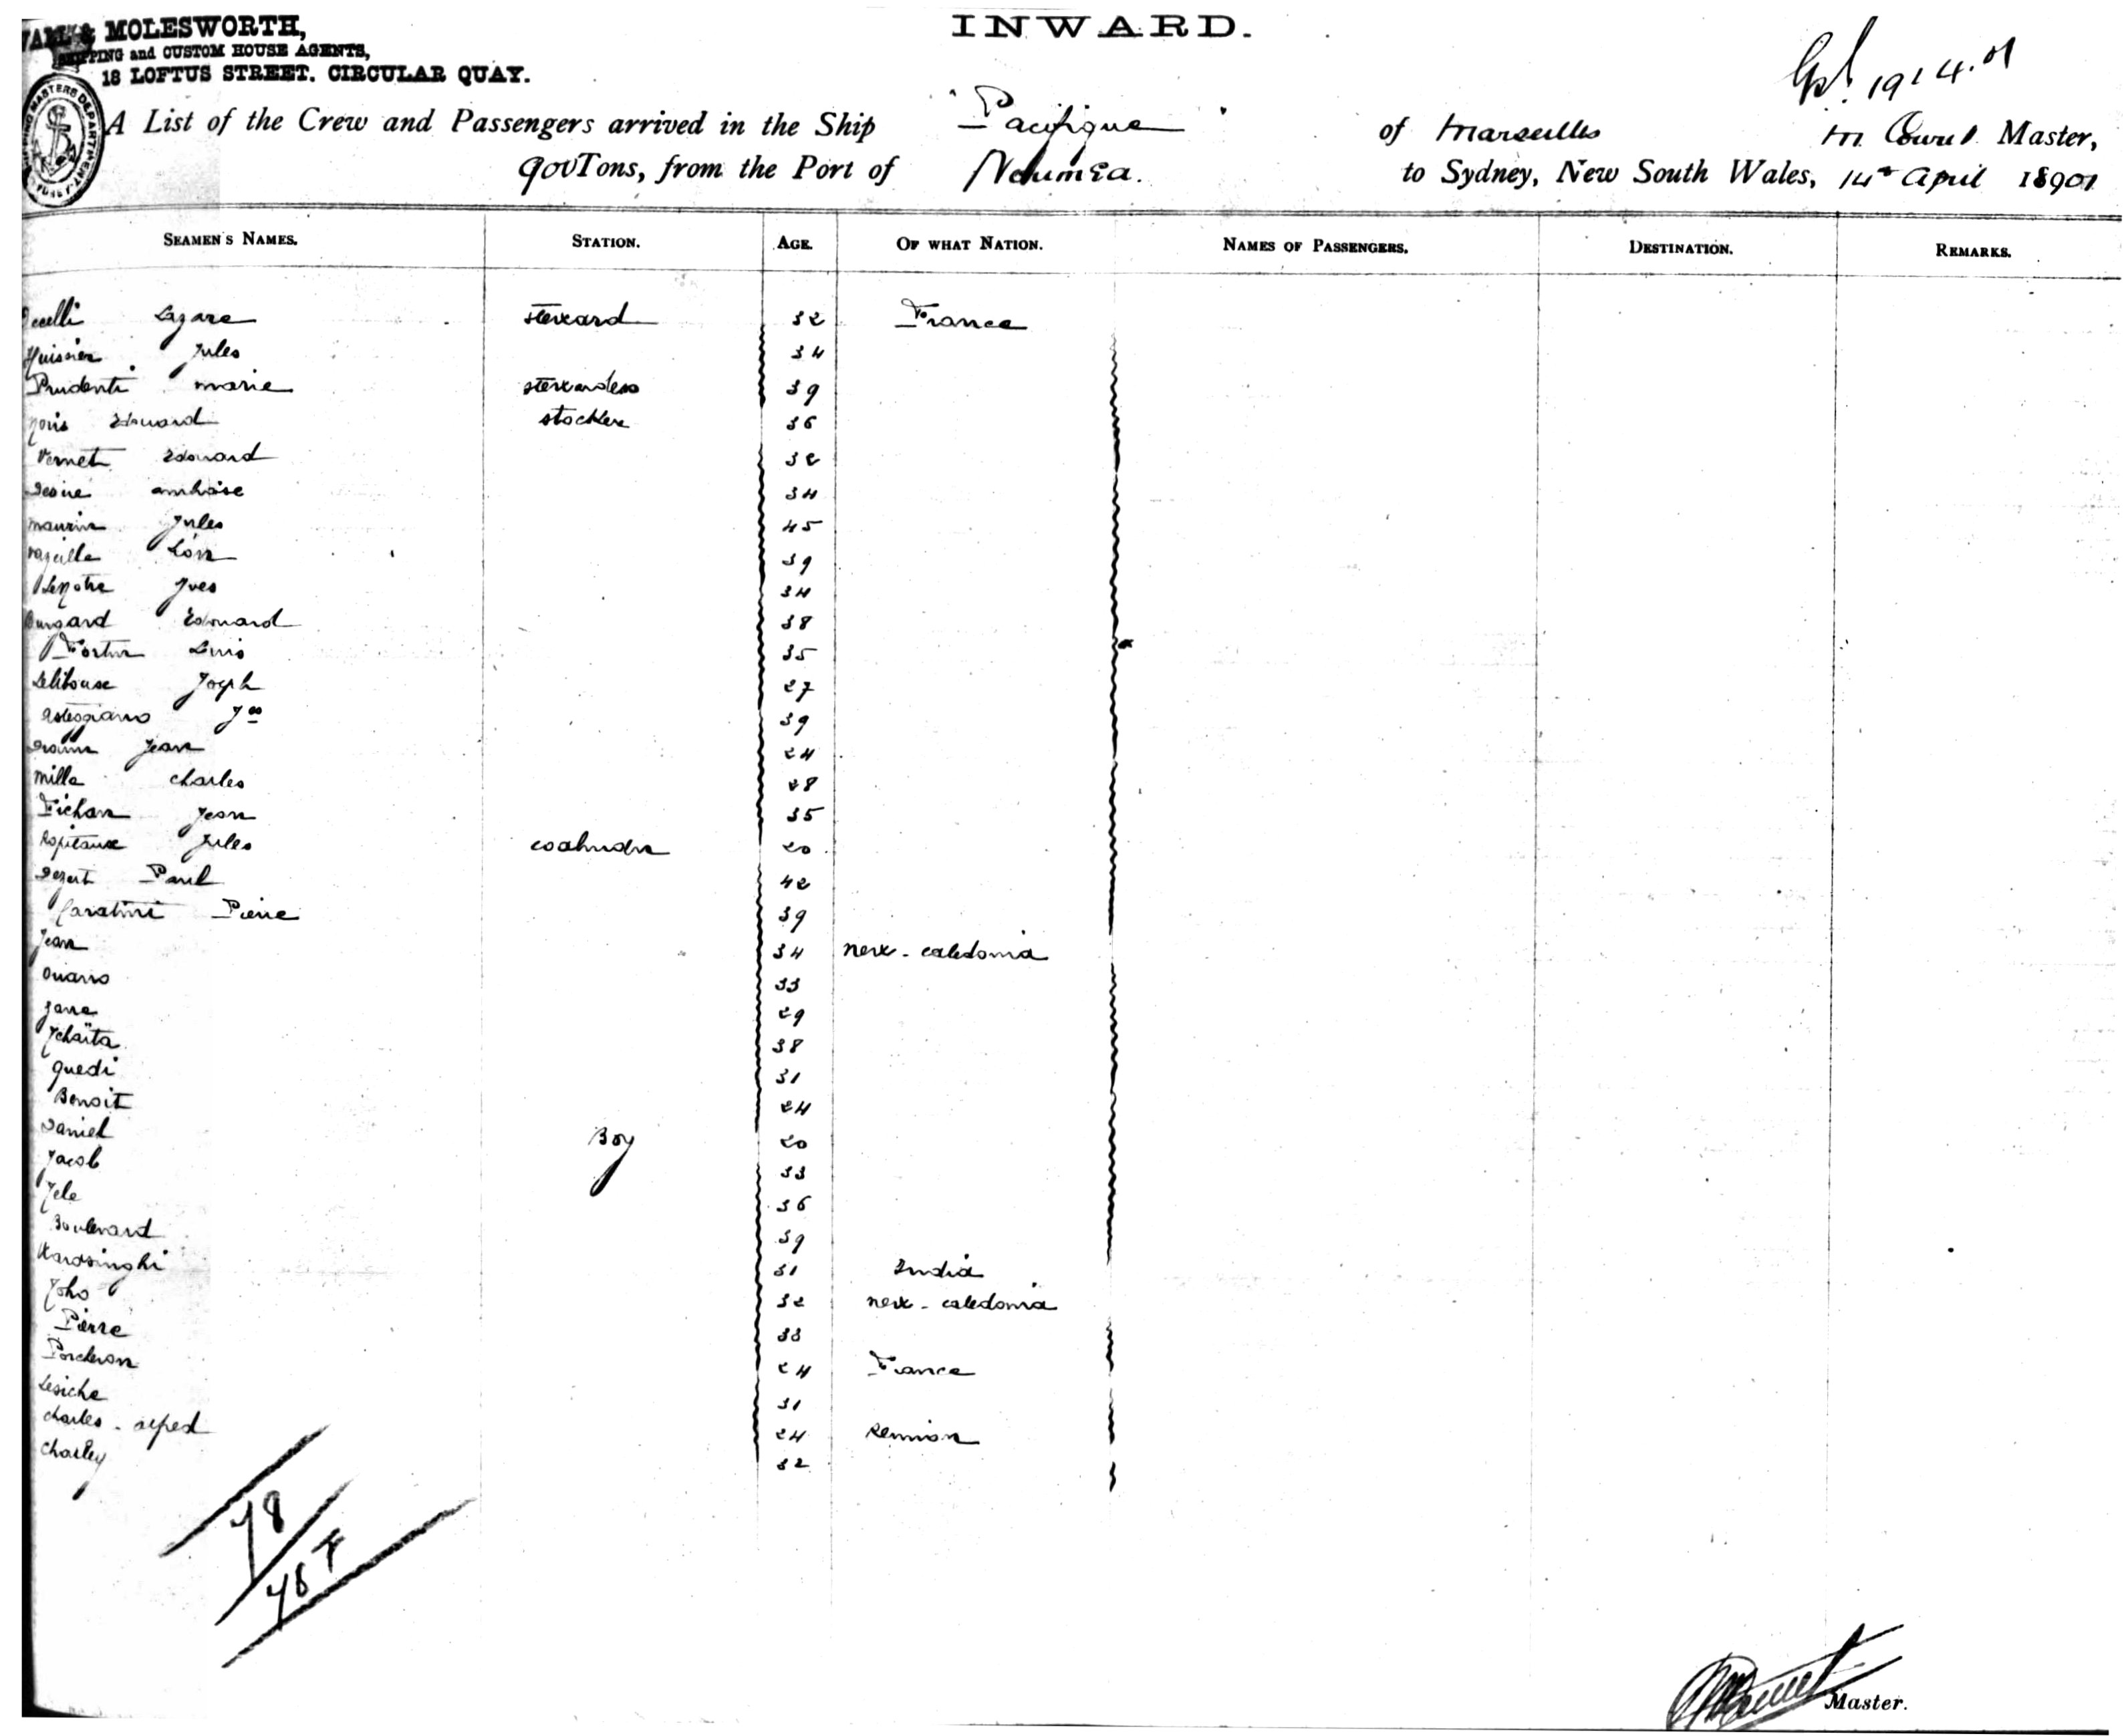 & MOLESWORTH, INWARD.
SHIPPING and CUSTOM HOUSE AGENTS,
18 LOFTUS STREET. CIRCULAR QUAY.
19 4.01
A List of the Crew and Passengers arrived in the Ship "Pacifique" of Marseilles M. Master,
Tons, from the Port of Noumea. to Sydney, New South Wales, 14th April 18901
SEAMEN'S NAMES. STATION. AGE. OF WHAT NATION. NAMES OF PASSENGERS. DESTINATION. REMARKS.
Lazare steward 32 France
Huissier Jules 34
Prudenti marie stewardess 39
Edouard stocker 36
Vernet Edouard 32
Desire ambroise 34
maurin Jules 45
Léon 39
Yves 34
Edouard 38
Fortun Louis 35
Joseph 27
39
Jean 24
mille charles 28
Fichan Jean 35
Jules 20
Desert Paul 42
Caratini Pierre 39
Jean 34 new-caledonia
ouano 33
29
Tchaïta 38
guedi 31
Benoit 24
Daniel Boy 20
Jacob 33
36
Boulevard 39
31 India
32 new-caledonia
Pierre 33
Porcheron 24 France
31
charles-alfred 24 Reunion
Charley 32
78
Master.